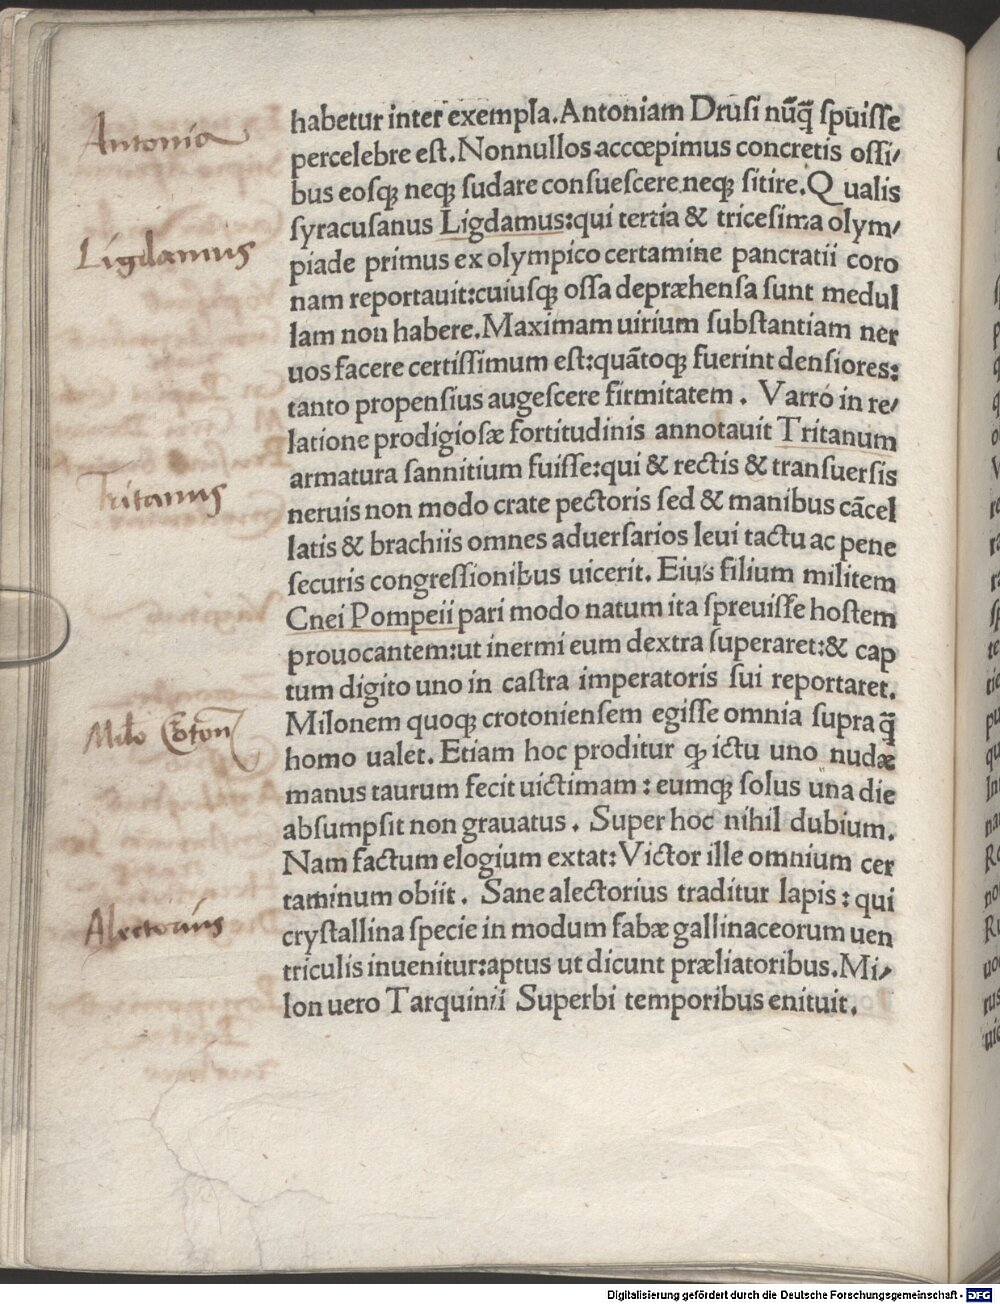 Antonia
Ligdamus
Tritanus
Milo Croton̄
Alectorius
habetur inter exempla. Antoniam Drusi nūq̄ spuisse
percelebre est. Nonnullos accœpimus concretis ossi/
bus eosqꝫ neqꝫ sudare consuescere neqꝫ sitire. Qualis
syracusanus Ligdamus: qui tertia & tricesima olym/
piade primus ex olympico certamine pancratii coro
nam reportauit: cuiusqꝫ ossa depræhensa sunt medul
lam non habere. Maximam uirium substantiam ner
uos facere certissimum est: quātoqꝫ fuerint densiores:
tanto propensius augescere firmitatem. Varro in re/
latione prodigiosæ fortitudinis annotauit Tritanum
armatura sannitium fuisse: qui & rectis & transuersis
neruis non modo crate pectoris sed & manibus cācel
latis & brachiis omnes aduersarios leui tactu ac pene
securis congressionibus uicerit. Eius filium militem
Cnei Pompeii pari modo natum ita spreuisse hostem
prouocantem: ut inermi eum dextra superaret: & cap
tum digito uno in castra imperatoris sui reportaret.
Milonem quoqꝫ crotoniensem egisse omnia supra q̄
homo ualet. Etiam hoc proditur ꝙ ictu uno nudæ
manus taurum fecit uictimam: eumqꝫ solus una die
absumpsit non grauatus. Super hoc nihil dubium.
Nam factum elogium extat: Victor ille omnium cer
taminum obiit. Sane alectorius traditur lapis: qui
crystallina specie in modum fabæ gallinaceorum uen
triculis inuenitur: aptus ut dicunt præliatoribus. Mi/
lon uero Tarquinii Superbi temporibus enituit.
Digitalisierung gefördert durch die Deutsche Forschungsgemeinschaft - DFG